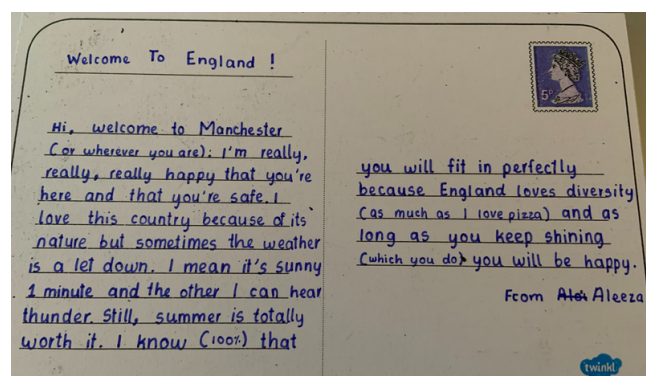 Welcome To England !
5P
Hi, welcome to Manchester
(or wherever you are): I'm really,
really, really happy that you're
here and that you're safe. I
love this country because of its
nature but sometimes the weather
is a let down. I mean it's sunny
1 minute and the other I can hear
thunder. Still, summer is totally
worth it. I know (100%) that
you will fit in perfectly
because England loves diversity
(as much as I love pizza) and as
long as you keep shining
(which you do) you will be happy.
From Aleeza
twinkl